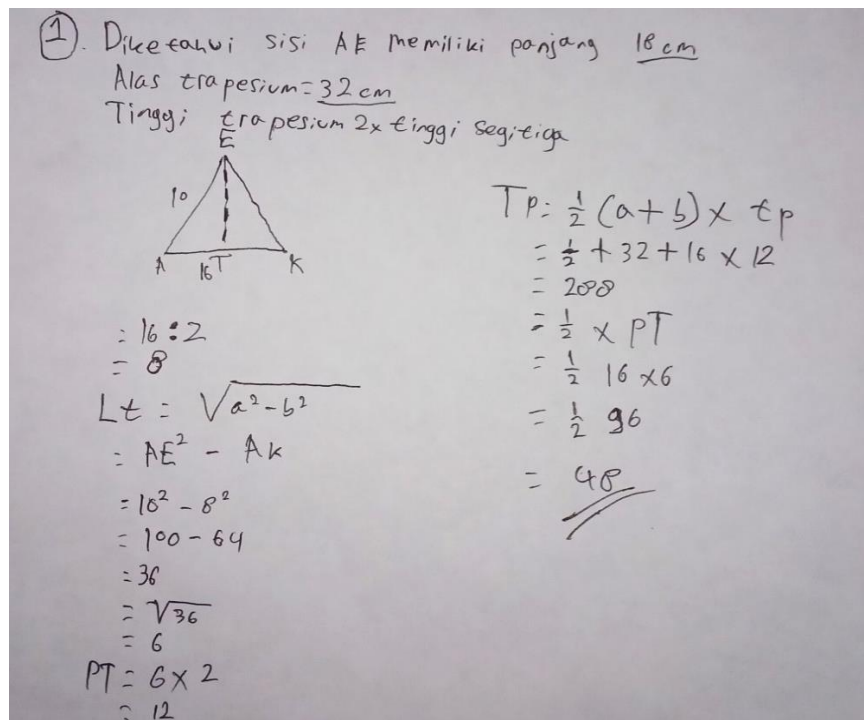 1. Diketahui sisi AE memiliki panjang 18 cm
Alas trapesium = 32 cm
Tinggi trapesium 2x tinggi segitiga
E
10
A 16 T K
= 16 : 2
= 8
Lt = √a²-b²
= AE² - AK
= 10² - 8²
= 100 - 64
= 36
= √36
= 6
PT = 6 x 2
= 12
Tp = 1/2 (a+b) x tp
= 1/2 + 32 + 16 x 12
= 288
= 1/2 x PT
= 1/2 16 x 6
= 1/2 96
= 48